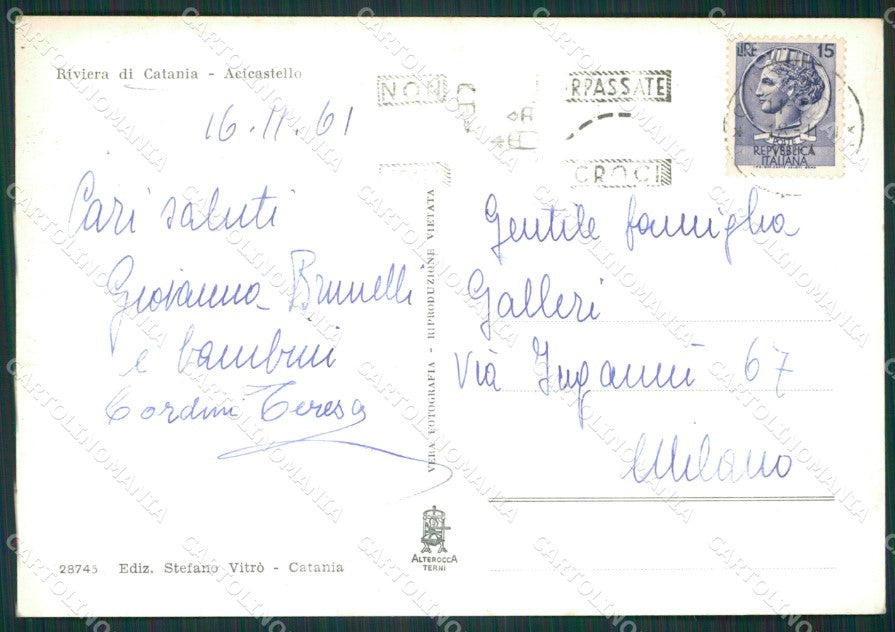 Riviera di Catania - Acicastello
16.11.61
Cari saluti
Giovanna Brunelli
e bambini
Cordini Teresa
28745 Ediz. Stefano Vitrò - Catania
VERA FOTOGRAFIA - RIPRODUZIONE VIETATA
ALTEROCCA
TERNI
NON
RPASSATE
CROCI
LIRE 15
POSTE
REPVBBLICA
ITALIANA
Gentile famiglia
Galleri
Via Inganni 67
Milano
CARTOLINOMANIA